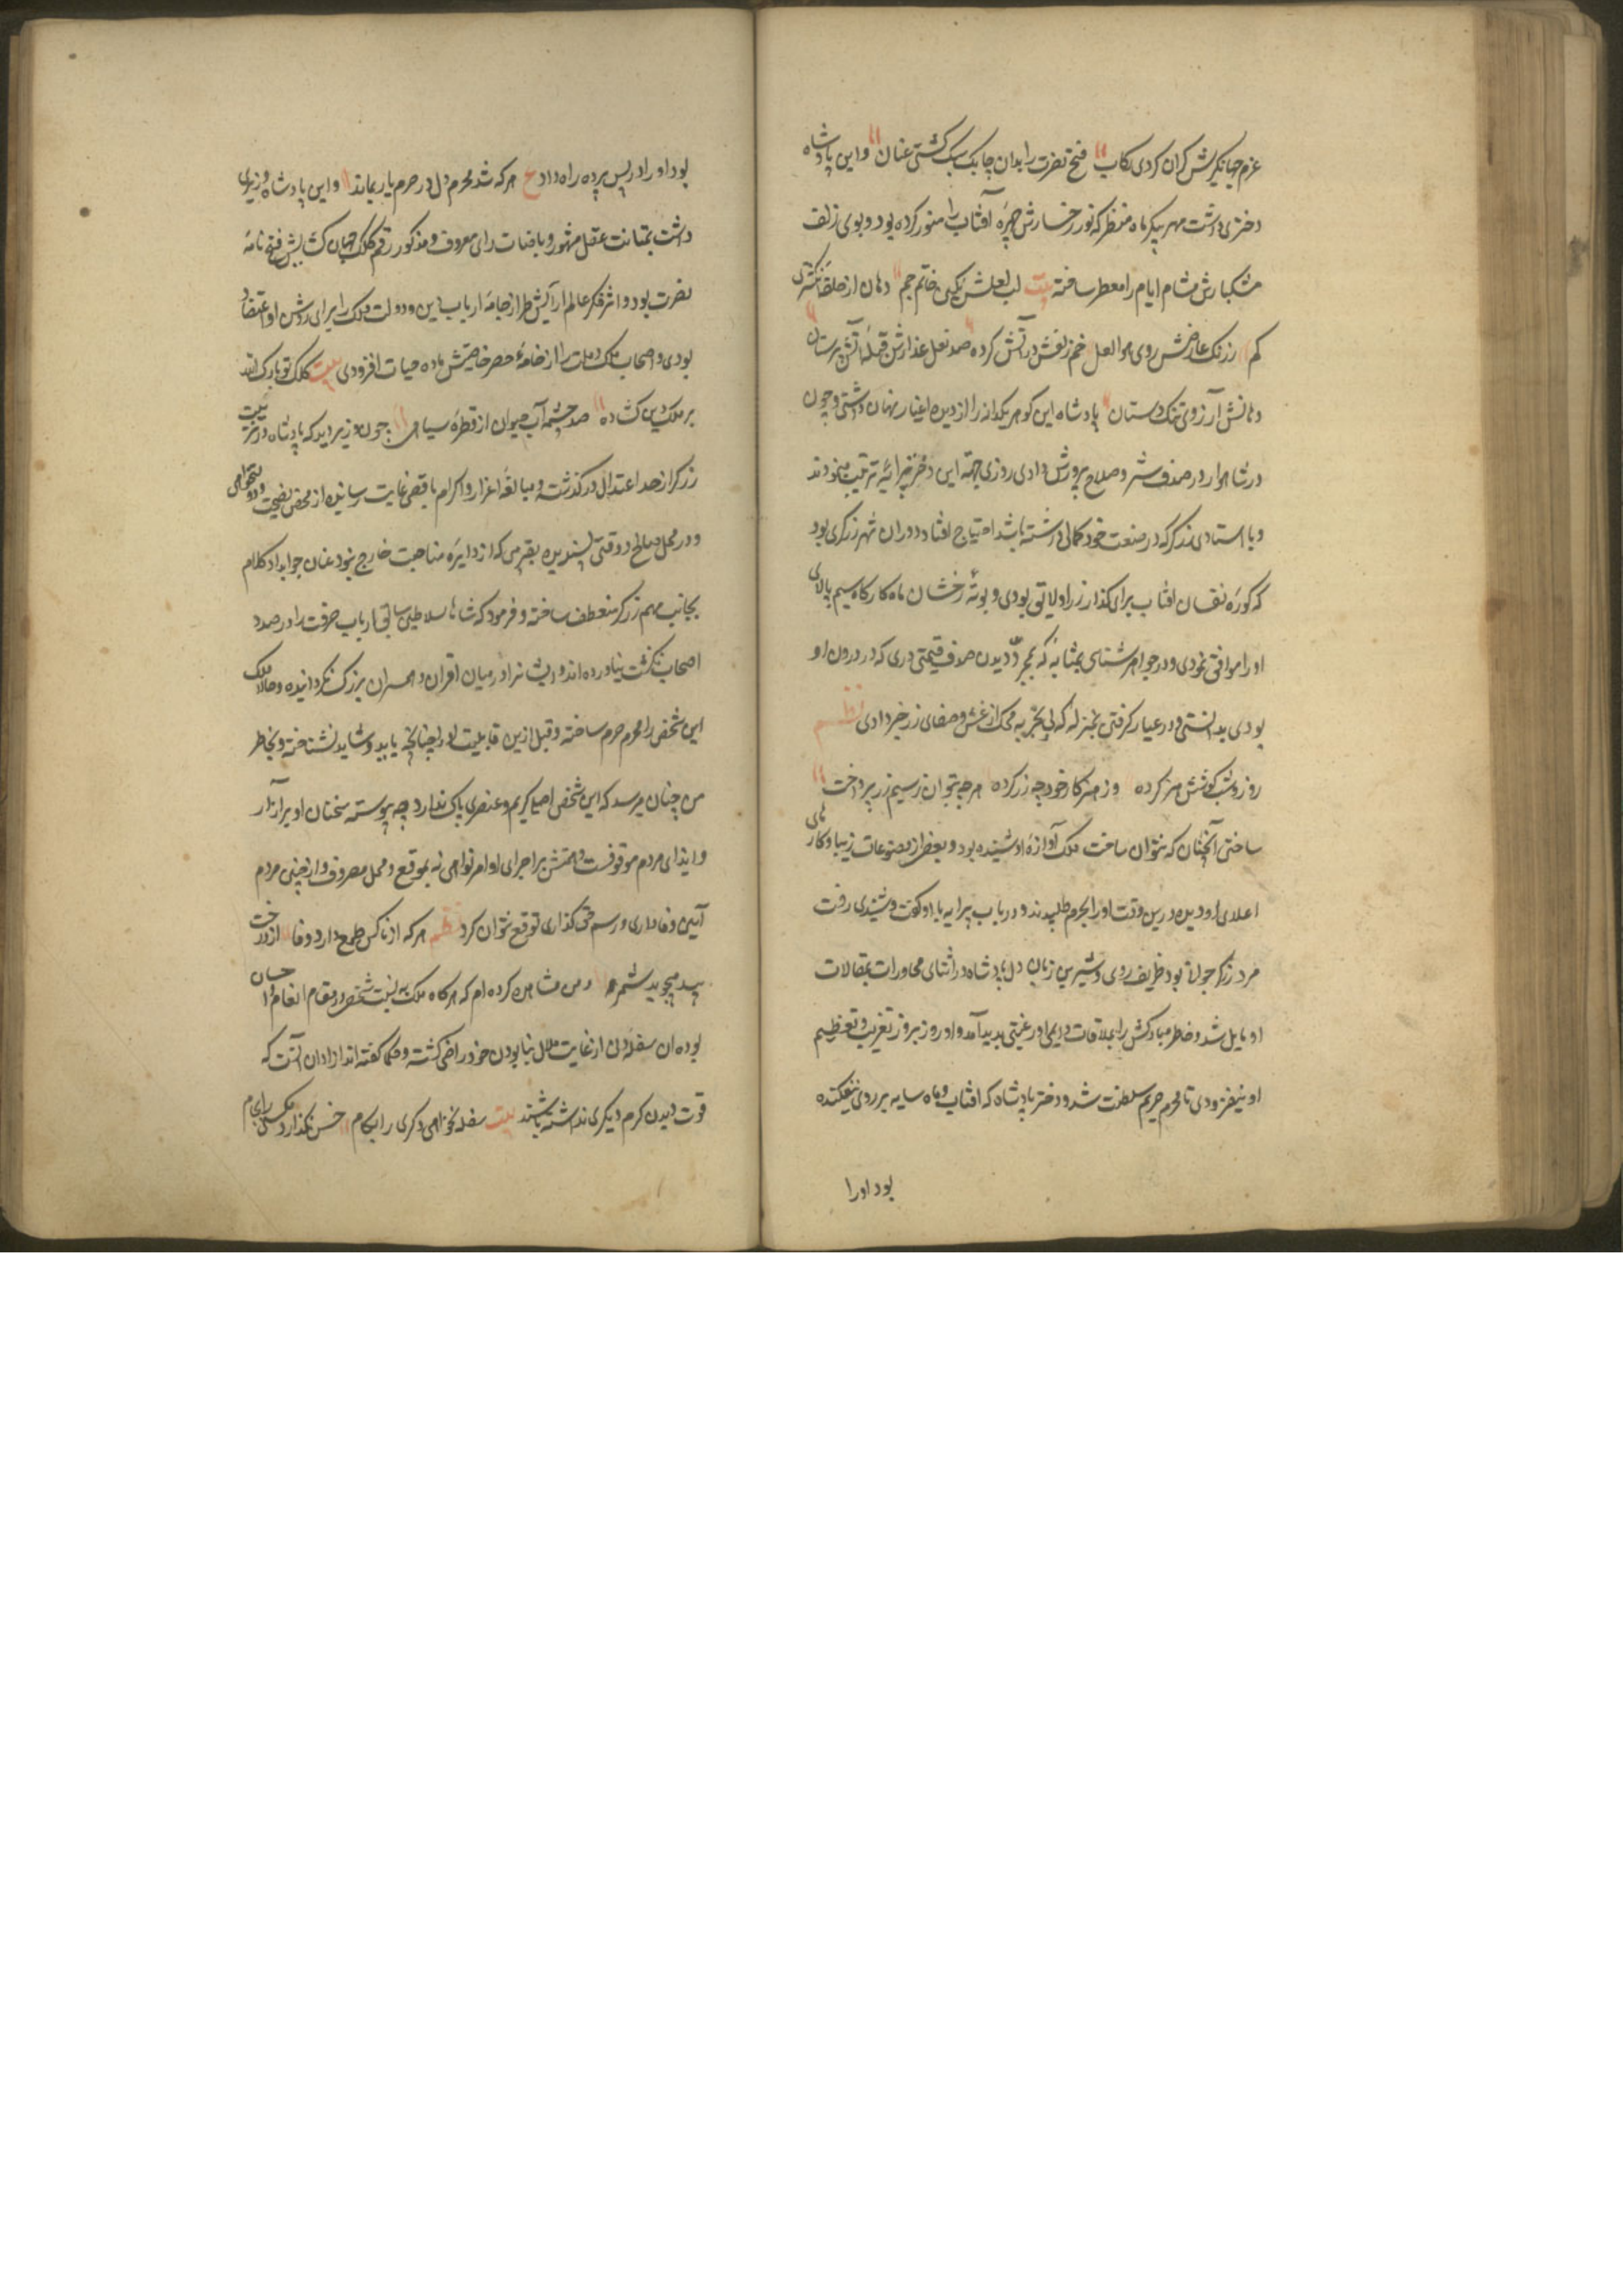 عزم جهانگیرش کران کردی رکاب فتح و نصرت را بدان چابک سبک کشتی عنان و این پادشاه
دختری داشت مهر پیکر ماه منظر که نور رخسارش چهرهٔ آفتاب را منور کرده بود و بوی زلف
مشکبارش مشام ایام را معطر ساخته بیت لب لعلش نکین خاتم جم دهان از حلقهٔ انکشتری
کم ز رنک عارضش روی هوا لعل خم زلفش در آتش کرده صد نعل عذارش قبلهٔ آتش پرستان
دهانش آرزوی تنک دستان پادشاه این کوهر یکدانه را از دیدهٔ اغیار نهان داشتی و چون
در شاهوار در صدف ستر و صلاح پرورش دادی روزی جهة این دختر پیرایهٔ ترتیب مینمودند
و با استادی زرکر که در صنعت خود کمالی داشته باشد احتیاج افتاد و در ان شهر زرکری بود
که کورهٔ نقسان افتاب برای کداز زر او لایق بودی و بوتهٔ رخشان ماه کارکاه سیم پالای
او را موافق نمودی و در جواهر شناسی بمثابهٔ که بمجرد دیدن صدف قیمتی دری که در درون او
بودی بدانستی و در عیار کرفتن بمنزلهٔ که بی تجربهٔ محک از غش و صفای زر خبر دادی نظم
روز و شب کوشش هنر کرده وز هنر کار خود چو زر کرده هر چه بتوان ز سیم و زر پرداخت
ساختی آنچنان که نتوان ساخت ملک آوازهٔ او شنیده بود و بعضی از مصنوعات زیبا و کارهای
اعلای او دیده درین وقت او را بحرم طلبیدند و در باب پیرایه با او کفت و شنیدی رفت
مرد زرکر جوانی بود ظریف روی و شیرین زبان دل پادشاه در اثنای محاورات بمقالات
او مایل شد و خاطر مبارکش را بملاقات دایمی او رغبتی پدید آمد و او روز بروز تقریب و تعظیم
او میفزودی تا محرم حریم سلطنت شد و دختر پادشاه که افتاب و ماه سایه بر روی نیفکنده
بود اورا
بود او را در پس پرده راه داد ع هر که شد محرم دل در حرم یار بماند و این پادشاه وزیری
داشت بمتانت عقل مشهور و باصابت رای معروف و مذکور رقم کلک جهان کشایش فتح نامهٔ
نصرت بود و اثر فکر عالم آرایش طراز جامهٔ ارباب دین و دولت ملک را برای روشن او اعتضاد
بودی و اصحاب ملک و ملت را از خامهٔ خضر خاصیتش مادهٔ حیات افزودی بیت کلک تو بارک الله
بر ملک و دین کشاده صد چشمه آب حیوان از قطرهٔ سیاهی چون وزیر دید که پادشاه در تربیت
زرکر از حد اعتدال در کذشت و مبالغهٔ اعزاز و اکرام باقصی غایت رسانیده از محض نصیحت و دولتخواهی
و در محل صالح و وقتی پسندیده بتقریبی که از دایرهٔ مناسبت خارج نبود عنان جواد کلام
بجانب مهم زرکر منعطف ساخته و فرمود که شاها سلاطین سابق ارباب حرفت را در صدد
اصحاب مکنت نیاورده اند و ایشانرا در میان اقران و همسران بزرک نکردانیده و حالا ملک
این شخص را محرم حرم ساخته و قبل ازین قابلیت او را چنانچه باید و شاید نشناخته و بخاطر
من چنان میرسد که این شخص اصل کریم و عنصری پاک ندارد چه پیوسته سخنان او بر آزار
و ایذای مردم موقوفست و همتش بر اجرای اوامر و نواهی نه بموقع و محل مصروف و از چنین مردم
آیین وفاداری و رسم حق کذاری توقع نتوان کرد نظم هر که از ناکس طمع دارد وفا از درخت
بید میجوید ثمر و من مشاهده کرده ام که هر کاه ملک به نسبت شخصی در مقام انعام و احسان
بوده ان سفلهٔ دن از غایت ملال بنابودن خود راضی کشته و حکما کفته اند از ادانی آنست که
قوت دیدن کرم دیکری نداشته باشند بیت سفله نخواهد دکری را بکام خس نکذارد مکسی را بجام